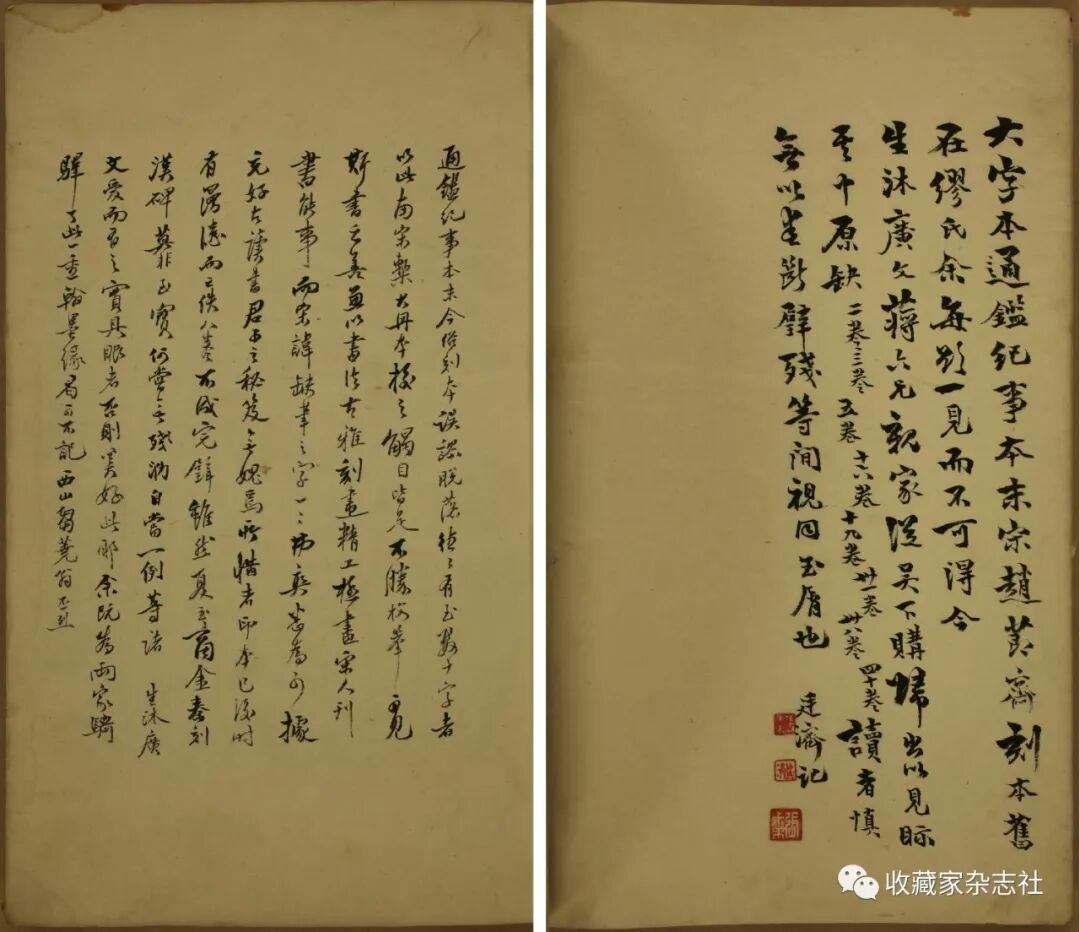 大字本通鑑紀事本末宋趙節齋刻本舊
在繆氏余每欲一見而不可得今
生沐廣文蔣六兄親家從吳下購歸出以見眎
其中原缺二卷三卷五卷十六卷十九卷卅一卷卅八卷四十卷讀者慎
無以斷璧殘等閒視同玉屑也
廷濟記
通鑑紀事本末今俗刻本誤謬脫落往往有至數十字者
以此南宋槧大冊本校之觸目皆是不勝枚舉
斯書之善兼以書法古雅刻畫精工極盡宋人刊
書能事而宋諱缺筆之字一一悉為可據
充好古讀書君子之秘笈無媿焉所惜者印本已後時
有漫漶而又佚八卷不成完璧雖然夏玉商金秦刻
漢碑至寶何嘗無殘泐自當一例等諸 生沐廣
文愛而有之實具眼者否則好此耶余既為兩家騎
驛了此一重翰墨緣曷可不記 西山翁
收藏家杂志社